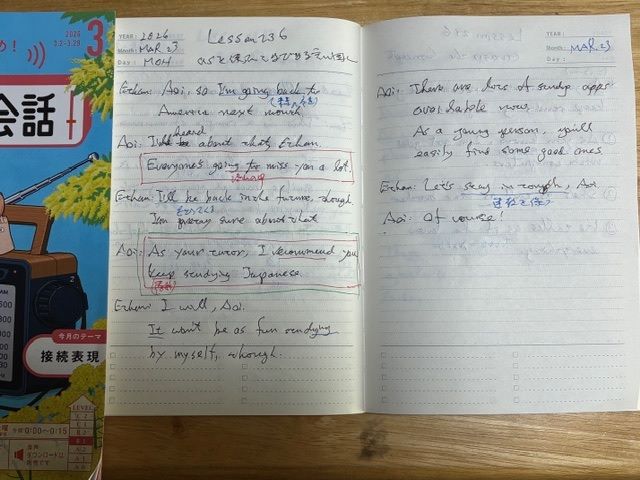 め!
2026
3.2-3.29
3
会話
今月のテーマ
接続表現
LEVEL
午前0:00~0:15
音声
ダウンロードは
有料です
YEAR: 2026
Month: MAR, 23
Day: MON
Lesson 236
Ethan: Aoi, so I'm going back to
America next month
Aoi: I'll be about that, Ethan.
heard
Everyone's going to miss you a lot.
Ethan: I'll be back in the future, though.
I'm pretty sure about that
Aoi: As your tutor, I recommend you
keep studying Japanese.
Ethan: I will, Aoi.
It won't be as fun studying
by myself, though.
YEAR:
Month: MAR. 23
Day:
Aoi: There are lots of study apps
available now.
As a young person, you'll
easily find some good ones
Ethan: Let's stay in touch, Aoi
Aoi: Of course!